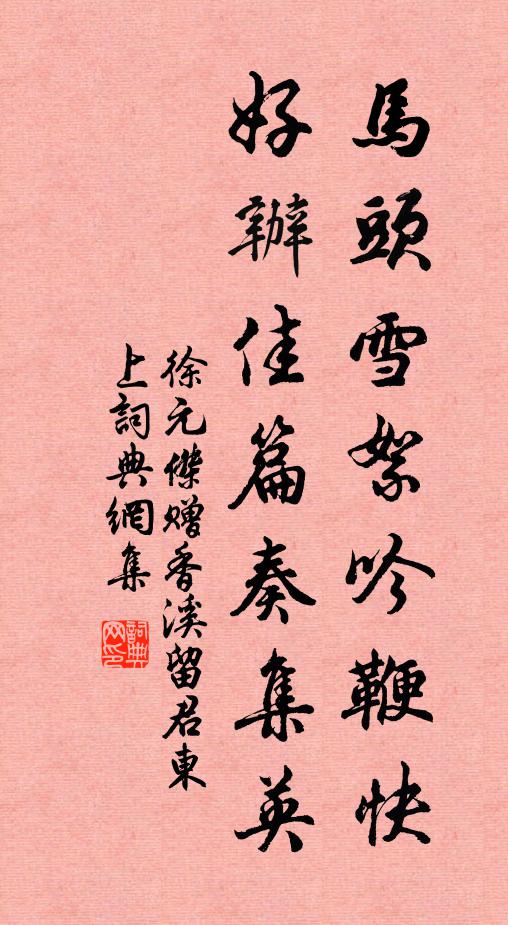 馬頭雪絮吟鞭快
好辦佳篇奏集英
徐元傑贈香溪留君東
上詞典網集
詞典網印